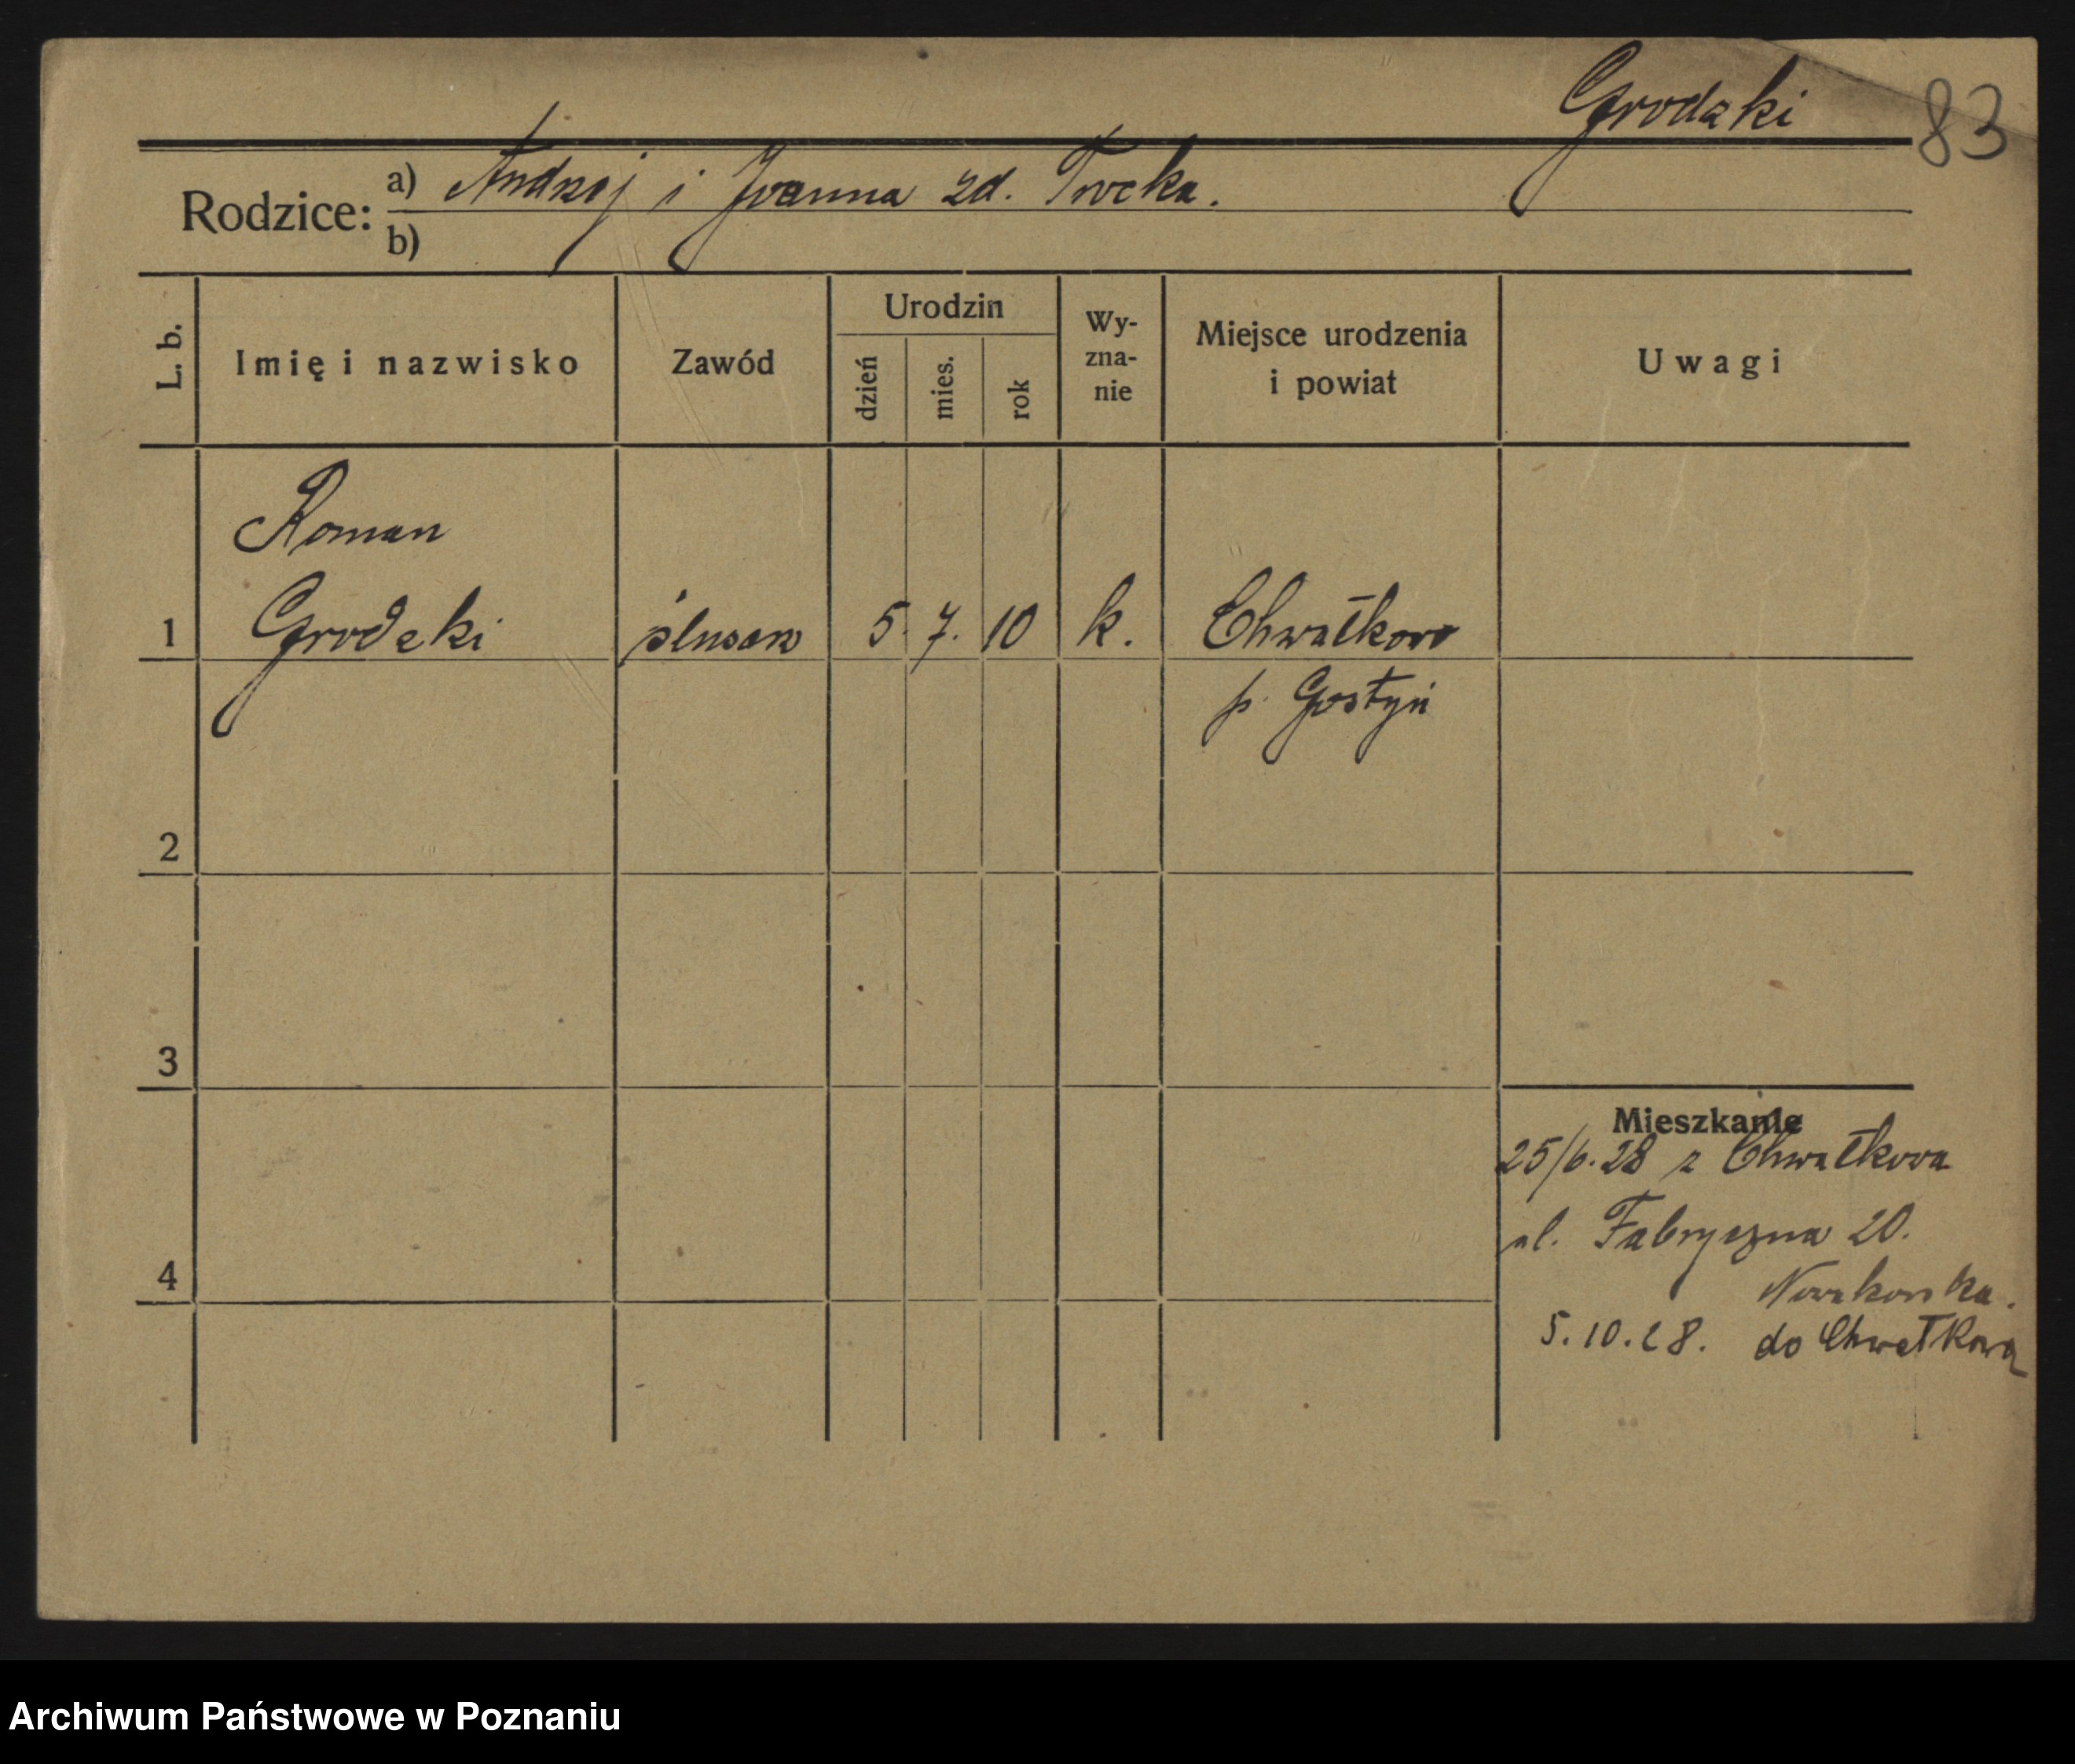 Grodzki
83
Rodzice:
a) Andrzej i Joanna zd.
b)
L. b.
Imię i nazwisko
Zawód
Urodzin
dzień
mies.
rok
Wy-
zna-
nie
Miejsce urodzenia
i powiat
Uwagi
Roman
1 Grodzki ślusarz 5. 7. 10 k. Chwałkowo
p. Gostyń
2
3
4
Mieszkanie
25/6.28 z Chwałkowa
ul. Fabryczna 20.
Nowakowska.
5.10.28. do Chwałkowa
Archiwum Państwowe w Poznaniu